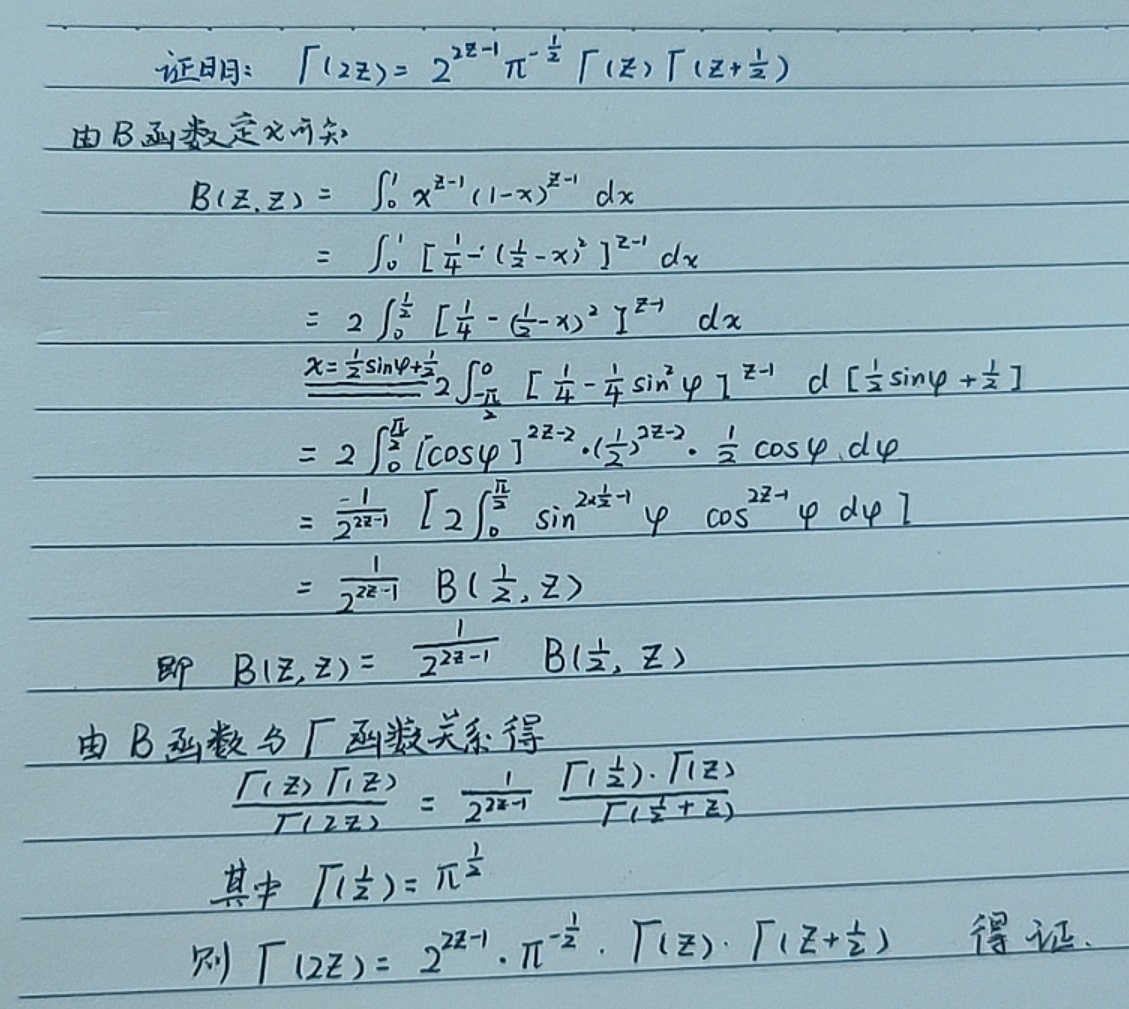 证明: Γ(2z) = 2^{2z-1} π^{-1/2} Γ(z) Γ(z+1/2)
由B函数定义可知
B(z,z) = ∫₀¹ x^{z-1} (1-x)^{z-1} dx
= ∫₀¹ [1/4 - (1/2 - x)²]^{z-1} dx
= 2 ∫₀^{1/2} [1/4 - (1/2 - x)²]^{z-1} dx
x = 1/2 sinφ + 1/2 2 ∫_{-π/2}^0 [1/4 - 1/4 sin²φ]^{z-1} d[1/2 sinφ + 1/2]
= 2 ∫₀^{π/2} [cosφ]^{2z-2} · (1/2)^{2z-2} · 1/2 cosφ dφ
= 1/2^{2z-1} [2 ∫₀^{π/2} sin^{2×1/2-1} φ cos^{2z-1} φ dφ]
= 1/2^{2z-1} B(1/2, z)
即 B(z,z) = 1/2^{2z-1} B(1/2, z)
由B函数与Γ函数关系得
Γ(z)Γ(z)/Γ(2z) = 1/2^{2z-1} Γ(1/2)·Γ(z)/Γ(1/2+z)
其中 Γ(1/2) = π^{1/2}
则 Γ(2z) = 2^{2z-1} · π^{-1/2} · Γ(z) · Γ(z+1/2) 得证.